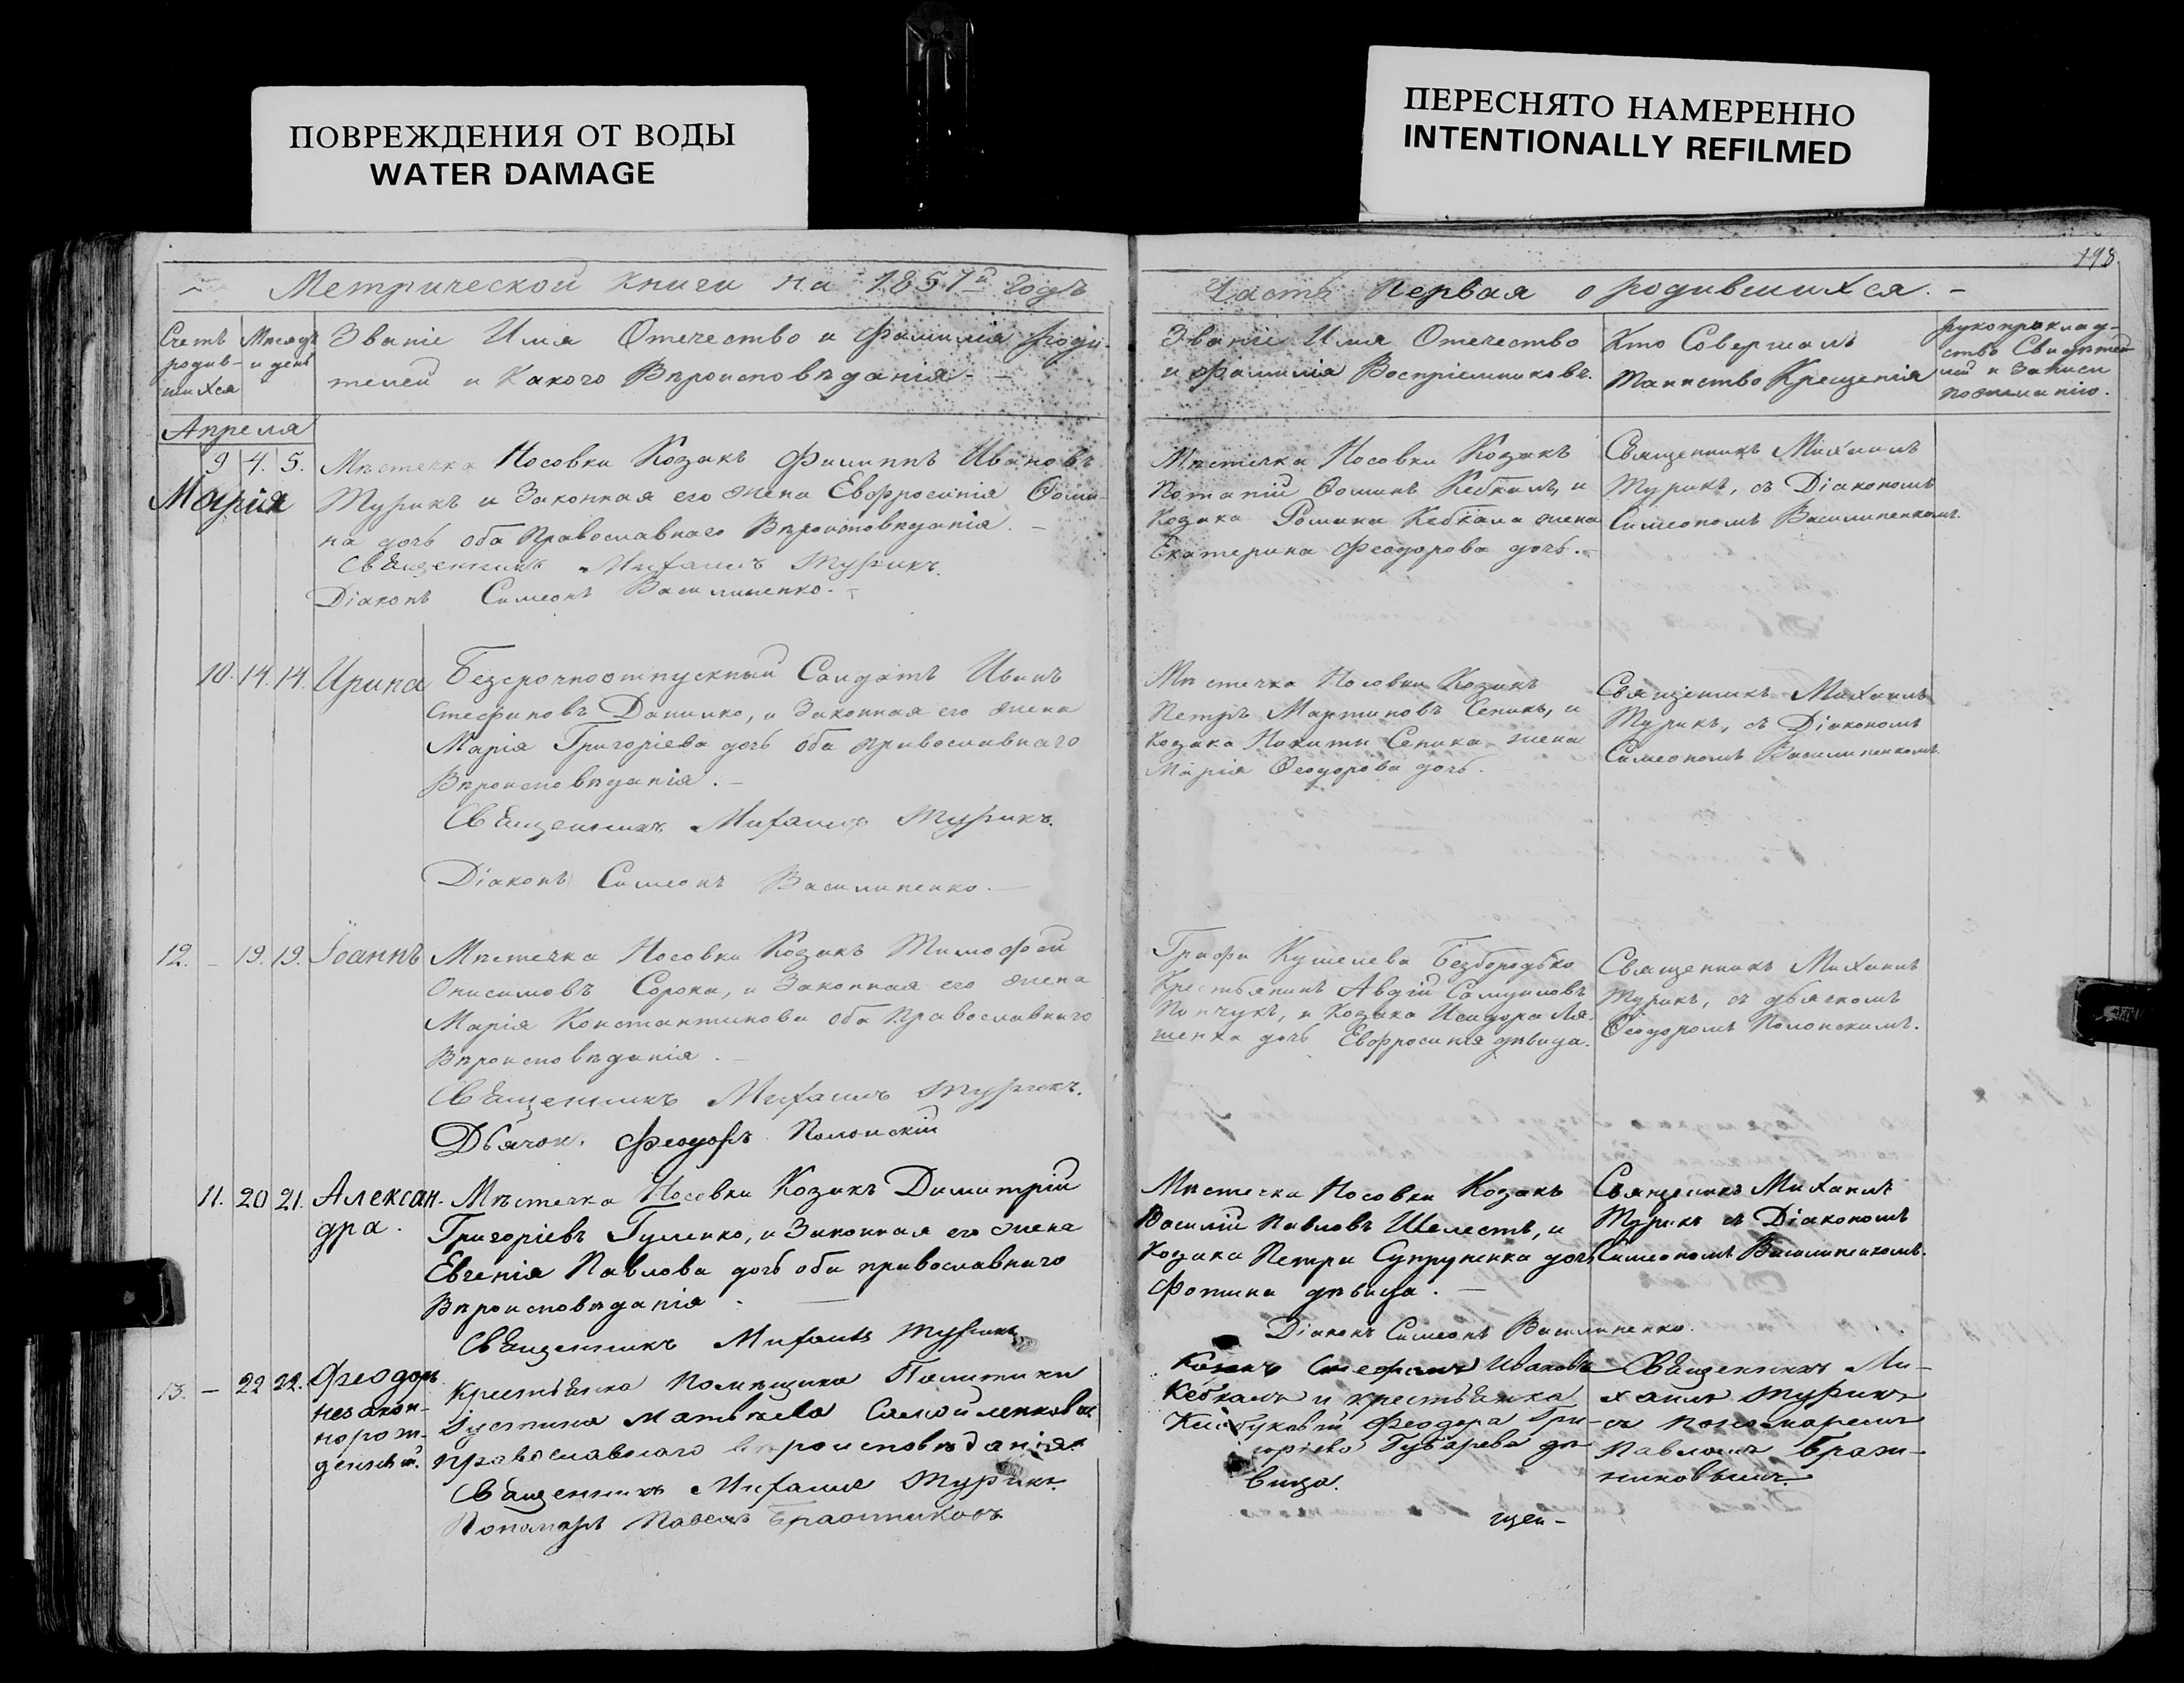 ПОВРЕЖДЕНИЯ ОТ ВОДЫ
WATER DAMAGE
ПЕРЕСНЯТО НАМЕРЕННО
INTENTIONALLY REFILMED
198
Метрической книги на 1851й годъ
Счетъ родив-шихся
Месяцъ и день
Званіе Имя Отечество и Фамилія Роди-
телей и Какого Вѣроисповѣданія
Апреля
9 4. 5.
Марія
Мѣстечка Носовки Козакъ Филиппъ Ивановъ
Турикъ и Законная его жена Евфросинія Ѳоми-
на дочь оба Православнаго Вѣроисповѣданія.
Священникъ Михаилъ Турикъ.
Діаконъ Симеонъ Василиненко.
10. 14. 14. Ирина
Безсрочноотпускный Салдатъ Иванъ
Стефановъ Данилко, и Законная его жена
Марія Григоріева дочь оба православнаго
Вѣроисповѣданія.
Священникъ Михаилъ Турикъ.
Діаконъ Симеонъ Василиненко.
12. - 19. 19. Іоаннъ
Мѣстечка Носовки Козакъ Тимофей
Онисимовъ Сорока, и Законная его жена
Марія Константинова оба Православнаго
Вѣроисповѣданія.
Священникъ Михаилъ Турикъ.
Дьячок. Феодоръ Полонскій
11. 20 21. Алексан-
дра.
Мѣстечка Носовки Козакъ Димитрій
Григоріевъ Гуленко, и Законная его жена
Евгенія Павлова дочь оба православнаго
Вѣроисповѣданія.
Священникъ Михаилъ Турикъ
13. - 22 22. Феодоръ
незакон-
норож-
денный.
Крестьянка Помѣщика
Іустина Матвѣева Самойленкова
православного вѣроисповѣданія.
Священникъ Михаилъ Турикъ
Пономарь Павелъ Бражниковъ
Часть Первая о родившихся.
Званіе Имя Отечество
и Фамилія Воспріемниковъ.
Кто Совершалъ
Таинство Крещенія
Рукоприклад-
ство Свидѣте-
лей и Записи
по желанію.
Мѣстечка Носовки Козакъ
Потапій Ѳоминъ Кебкалъ, и
Козака Романа Кебкала жена
Екатерина Феодорова дочь.
Священникъ Михаилъ
Турикъ, съ Діакономъ
Симеономъ Василиненкомъ.
Мѣстечка Носовки Козакъ
Петръ Мартиновъ Сепикъ, и
Козака Никиты Сепика жена
Марія Ѳеодорова дочь.
Священникъ Михаилъ
Турикъ, съ Діакономъ
Симеономъ Василиненкомъ.
Графа Кушелева Безбородько
Крестьянинъ Авдій Самуиловъ
и Козака Исидора Ля-
шенка дочь Евфросинія дѣвица.
Священникъ Михаилъ
Турикъ, съ дьячкомъ
Ѳеодоромъ Полонскимъ.
Мѣстечка Носовки Козакъ
Василій Павловъ Шелестъ, и
Козака Петра Супруненка дочь
Фотина дѣвица.
Священникъ Михаилъ
Турикъ съ Діакономъ
Симеономъ Василиненкомъ.
Діаконъ Симеонъ Василиненко.
Козакъ Стефанъ Ивановъ
Кебкалъ и крестьянка
Феодора Гри-
горіева Губарева дѣ-
вица.
Священникъ Ми-
хаилъ Турикъ
съ пономаремъ
Павломъ Браж-
никовымъ.